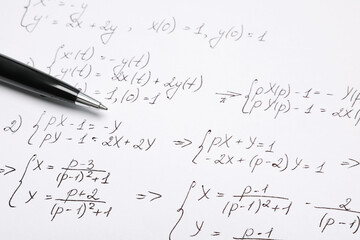 { x' = -y
y' = 2x + 2y , x(0) = 1, y(0) = 1
{ x'(t) = -y(t)
y'(t) = 2x(t) + 2y(t)
=1, (0) = 1
=> { pX(p) - 1 = -Y
pY(p) - 1 = 2X
2) { pX - 1 = -Y
pY - 1 = 2X + 2Y
=> { pX + Y = 1
-2X + (p-2)Y = 1 =>
=> { X = p-3 / (p-1)²+1
Y = p+2 / (p-1)²+1
=> { X = p-1 / (p-1)²+1 - 2 / (p-1)
Y = p-1